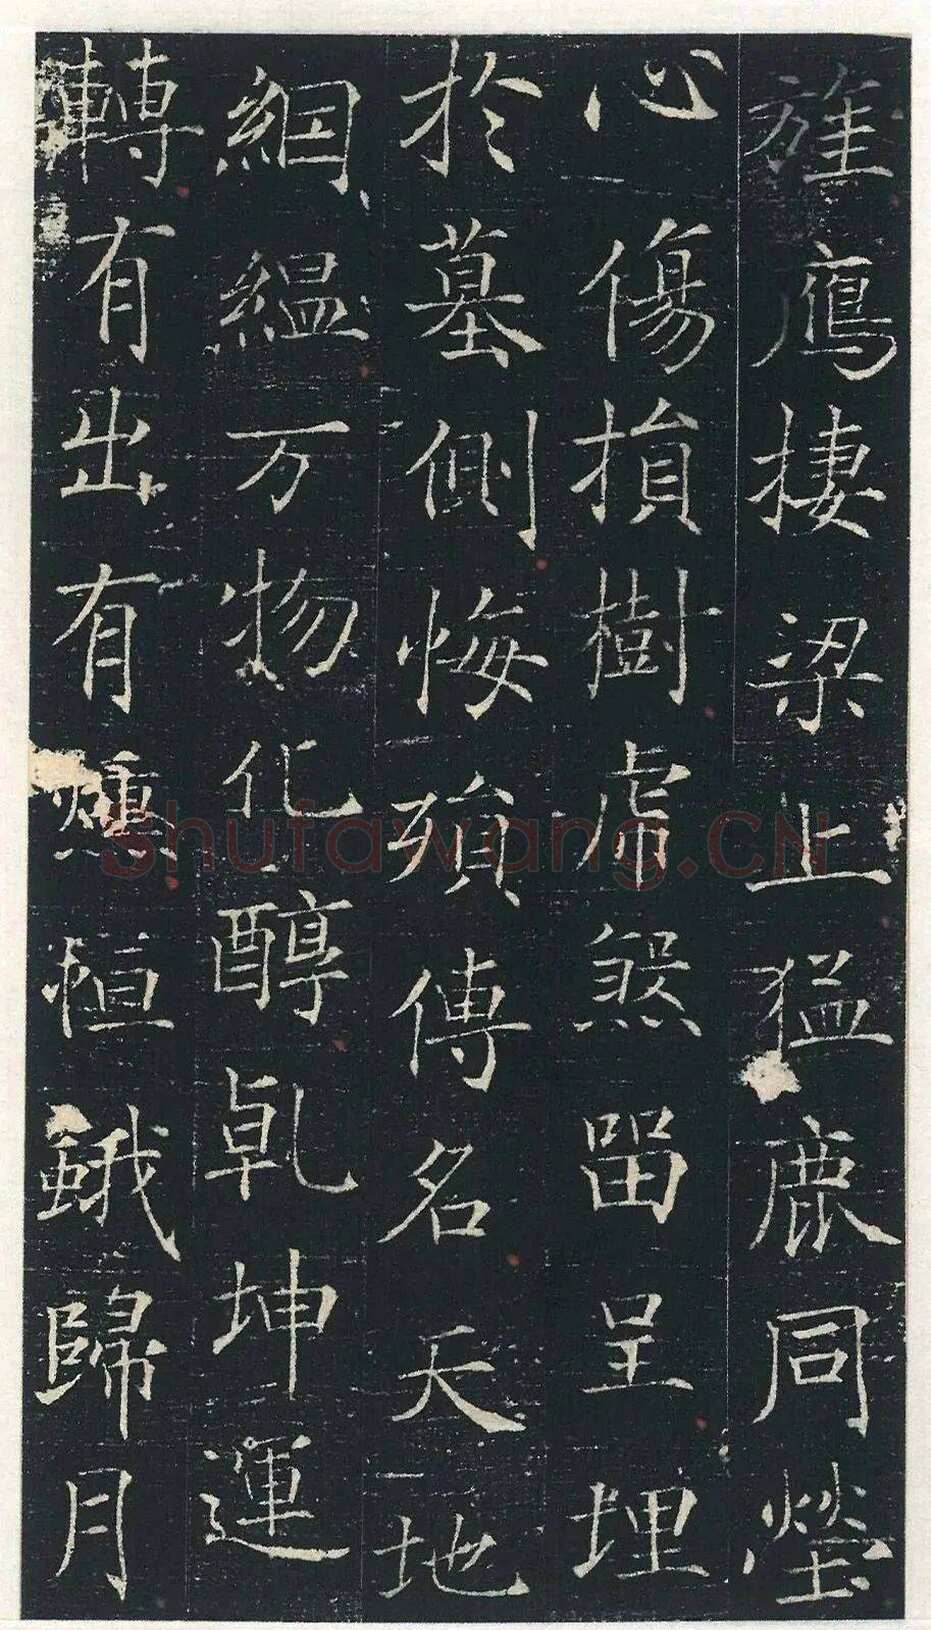 旌鷹棲梁止猛鹿同塋
心傷損樹虎煞留呈埋
於墓側悔殞傳名天地
絪縕万物化醇乹坤運
轉有出有㷫恒蛾歸月
Shufawang.CN